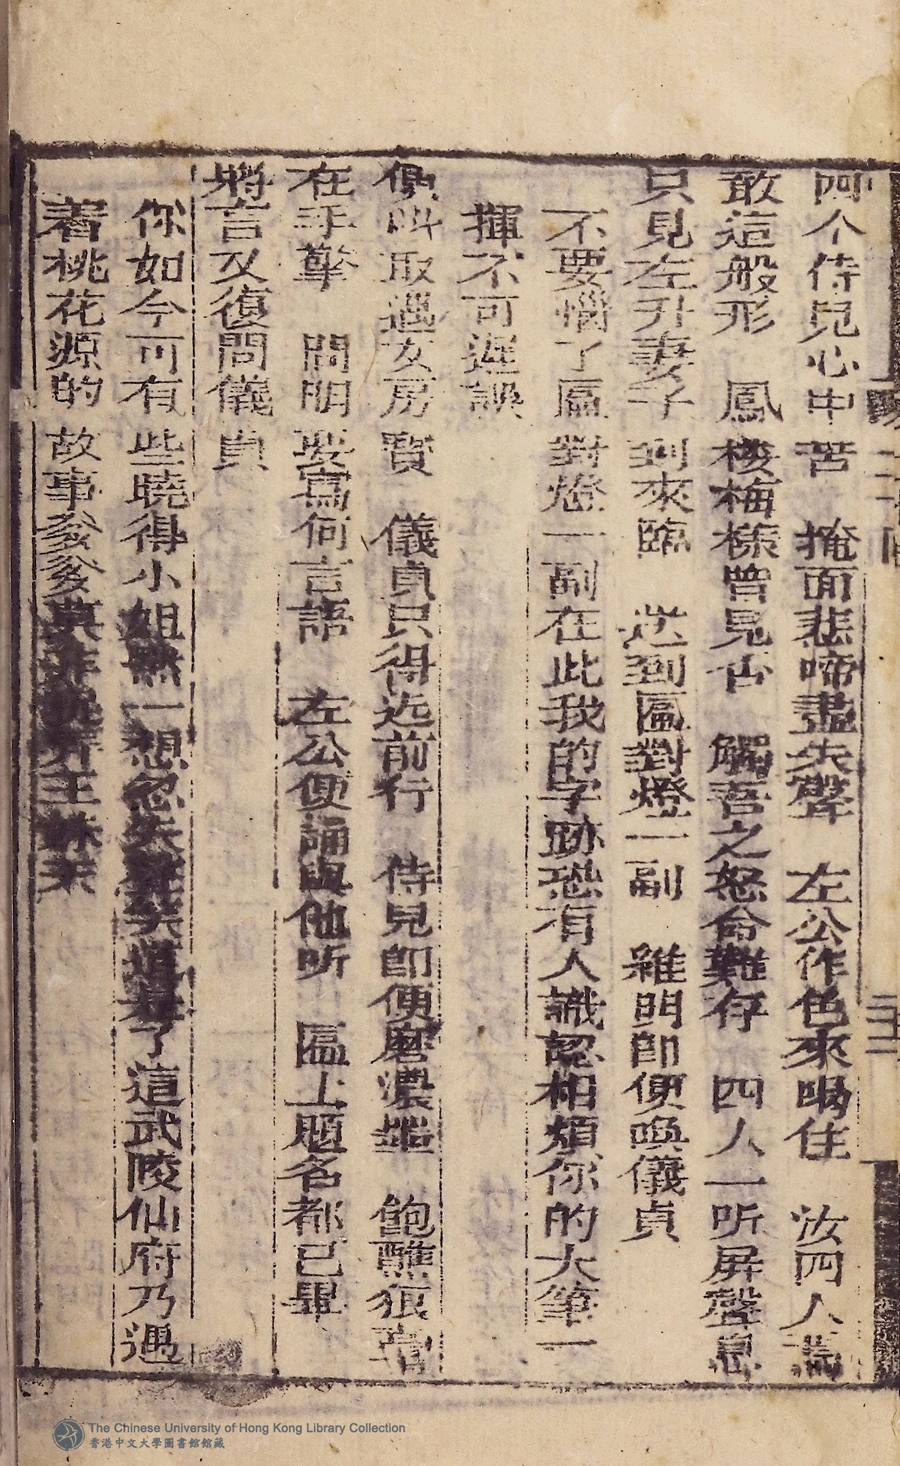 四个侍兒心中苦　掩面悲啼盡失聲　左公作色來喝住　汝四人焉
敢這般形　鳳梭梅樣曾見否　觸吾之怒命難存　四人一听屏聲息
只見左升妻子到來臨　送到匾對燈一副　維明即便喚儀貞
不要惱了匾對燈一副在此我的字跡恐有人識認相煩你的大筆一
揮不可遲誤
便呌取過文房賢　儀貞只得近前行　侍兒即便磨濃墨　飽蘸狼毫
在手擎　問明要寫何言語　左公便誦與他听　匾上題名都已畢
將言又復問儀貞
你如今可有些曉得小姐黙一想忽失聲笑道是了這武陵仙府乃遇
着桃花源的故事爹爹莫非
The Chinese University of Hong Kong Library Collection
香港中文大學圖書館館藏